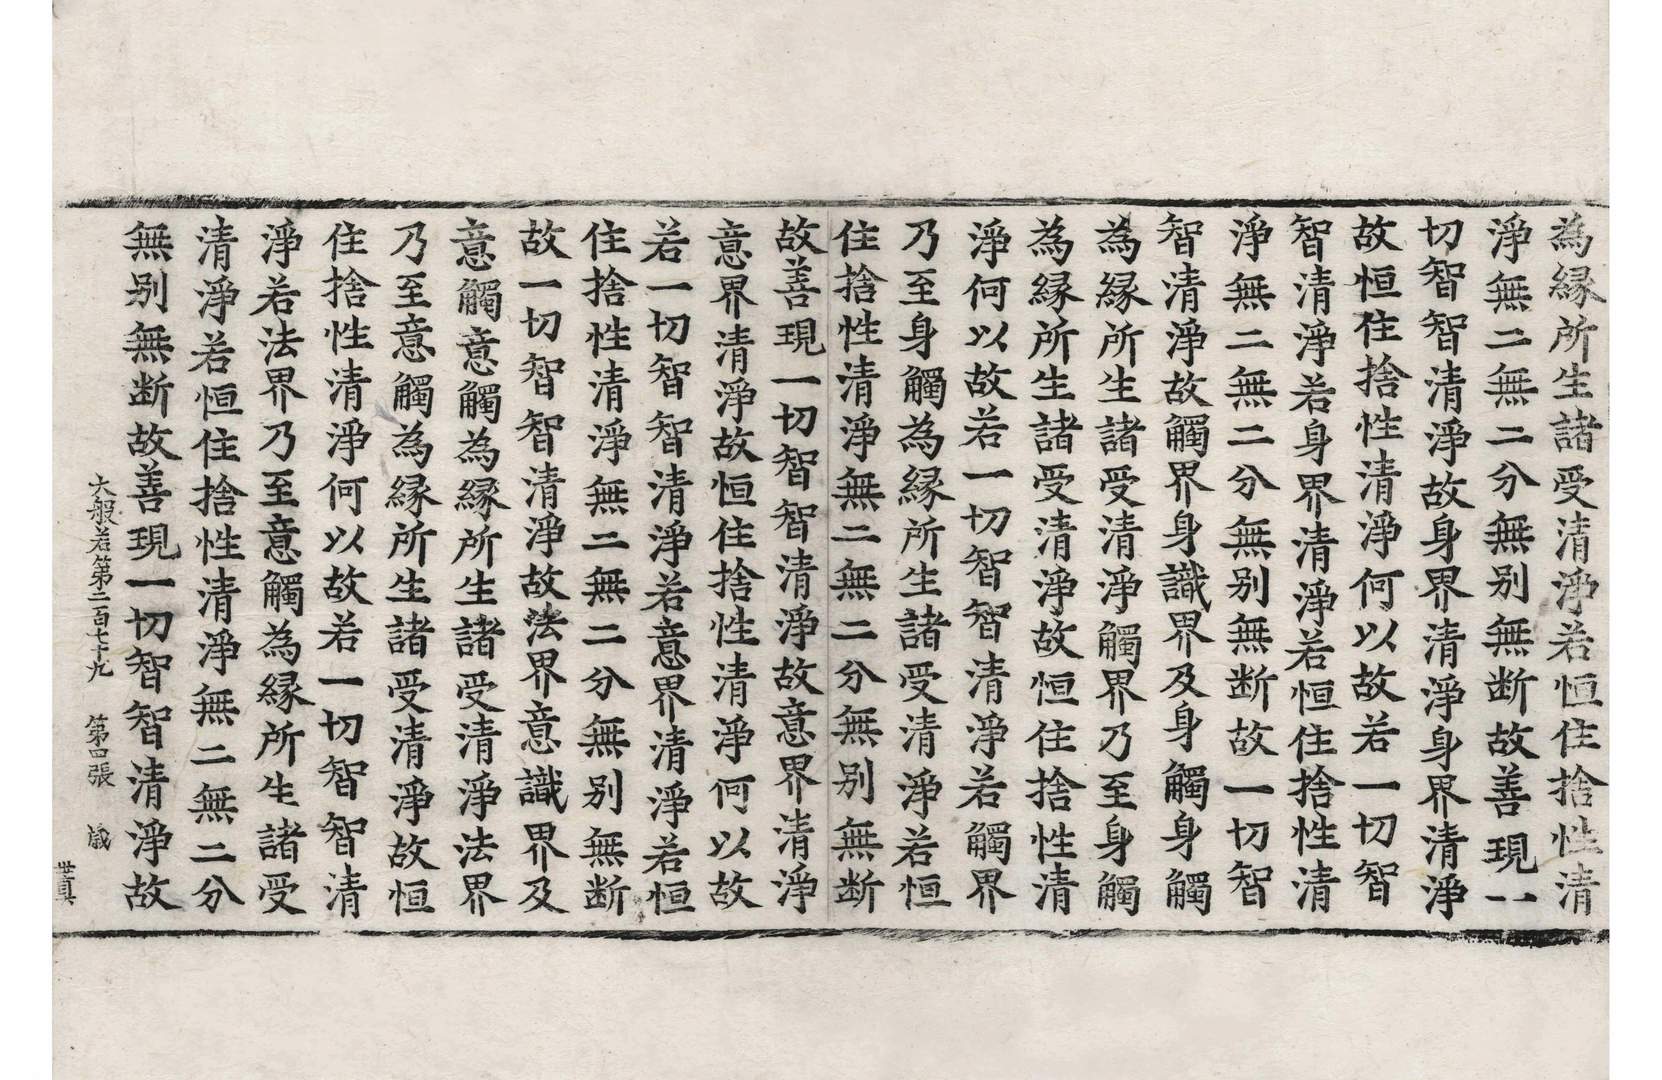 為縁所生諸受清淨若恒住捨性清
淨無二無二分無別無断故善現一
切智智清淨故身界清淨身界清淨
故恒住捨性清淨何以故若一切智
智清淨若身界清淨若恒住捨性清
淨無二無二分無別無断故一切智
智清淨故觸界身識界及身觸身觸
為縁所生諸受清淨觸界乃至身觸
為縁所生諸受清淨故恒住捨性清
淨何以故若一切智智清淨若觸界
乃至身觸為縁所生諸受清淨若恒
住捨性清淨無二無二分無別無断
故善現一切智智清淨故意界清淨
意界清淨故恒住捨性清淨何以故
若一切智智清淨若意界清淨若恒
住捨性清淨無二無二分無別無断
故一切智智清淨故法界意識界及
意觸意觸為縁所生諸受清淨法界
乃至意觸為縁所生諸受清淨故恒
住捨性清淨何以故若一切智智清
淨若法界乃至意觸為縁所生諸受
清淨若恒住捨性清淨無二無二分
無別無断故善現一切智智清淨故
大般若第二百七十九 第四張 歲
世真